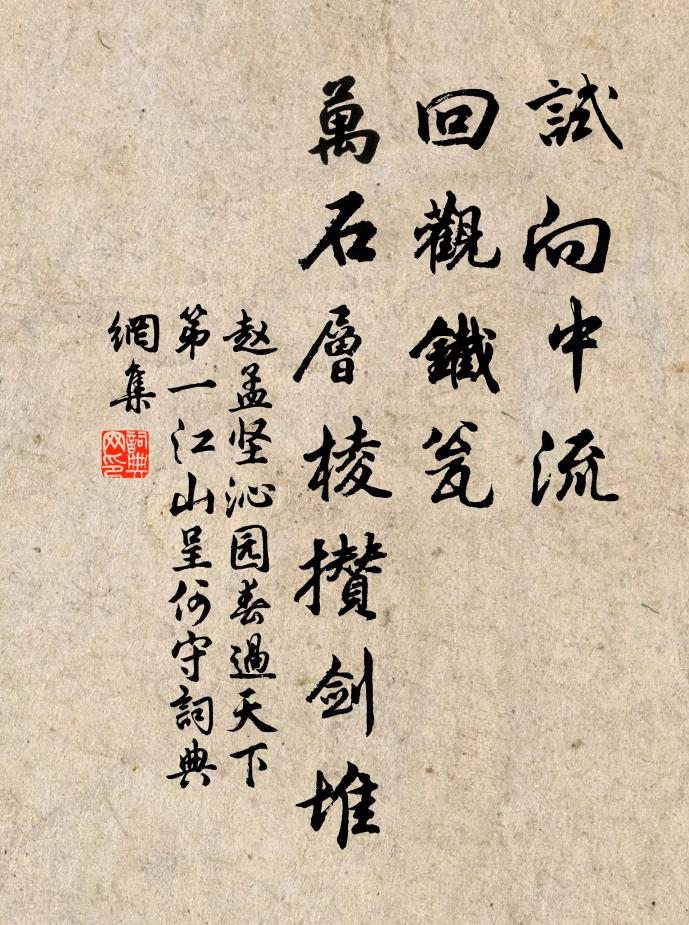 試向中流
回觀鐵瓮
萬石層棱攢剑堆
赵孟坚沁园春過天下
第一江山呈何守詞典
網集
詞典网印